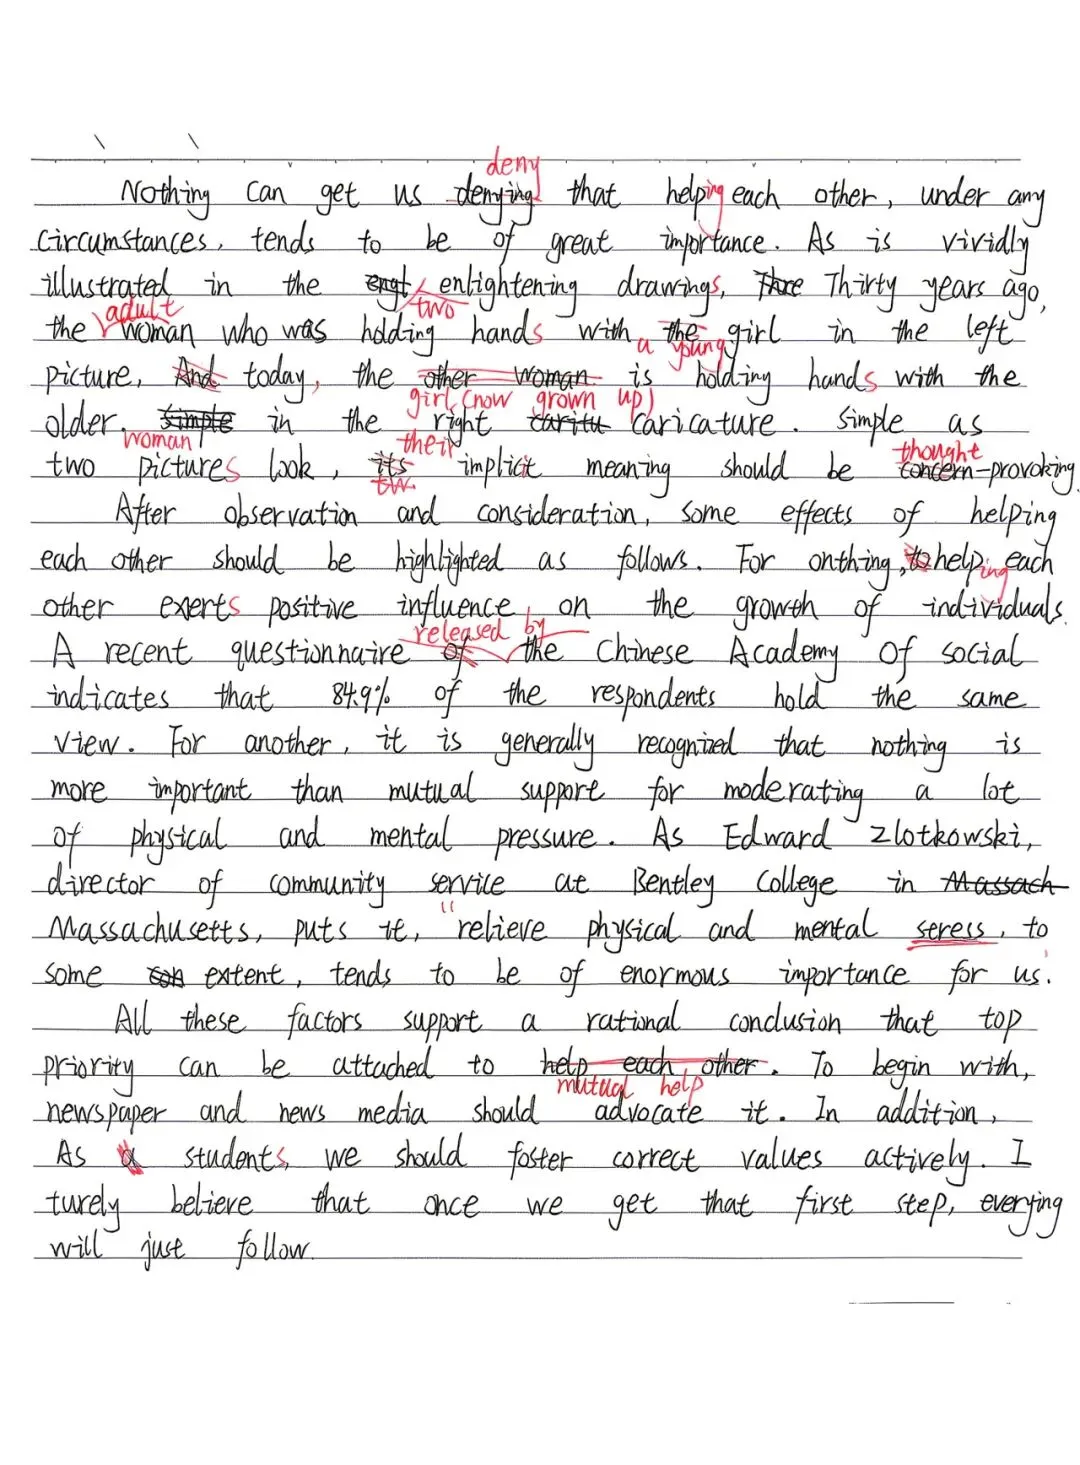 deny
Nothing can get us denying that helping each other, under any
circumstances, tends to be of great importance. As is vividly
illustrated in the enlightening drawings, Thirty years ago,
adult two
the woman who was holding hands with the girl in the left
a young
picture, And today, the other woman is holding hands with the
girl (now grown up)
older. simple in the right caritu caricature. Simple as
woman their thought
two pictures look, its implicit meaning should be concern-provoking.
tw
After observation and consideration, some effects of helping
each other should be highlighted as follows. For onthing, to helping each
other exerts positive influence on the growth of individuals.
released by
A recent questionnaire of the Chinese Academy of social
indicates that 84.9% of the respondents hold the same
view. For another, it is generally recognized that nothing is
more important than mutual support for moderating a lot
of physical and mental pressure. As Edward Zlotkowski,
director of community service at Bentley College in Massach
Massachusetts, puts it, "relieve physical and mental stress, to
some extent, tends to be of enormous importance for us.
All these factors support a rational conclusion that top
priority can be attached to help each other. To begin with,
mutual help
newspaper and news media should advocate it. In addition,
As a students, we should foster correct values actively. I
turely believe that once we get that first step, everying
will just follow.